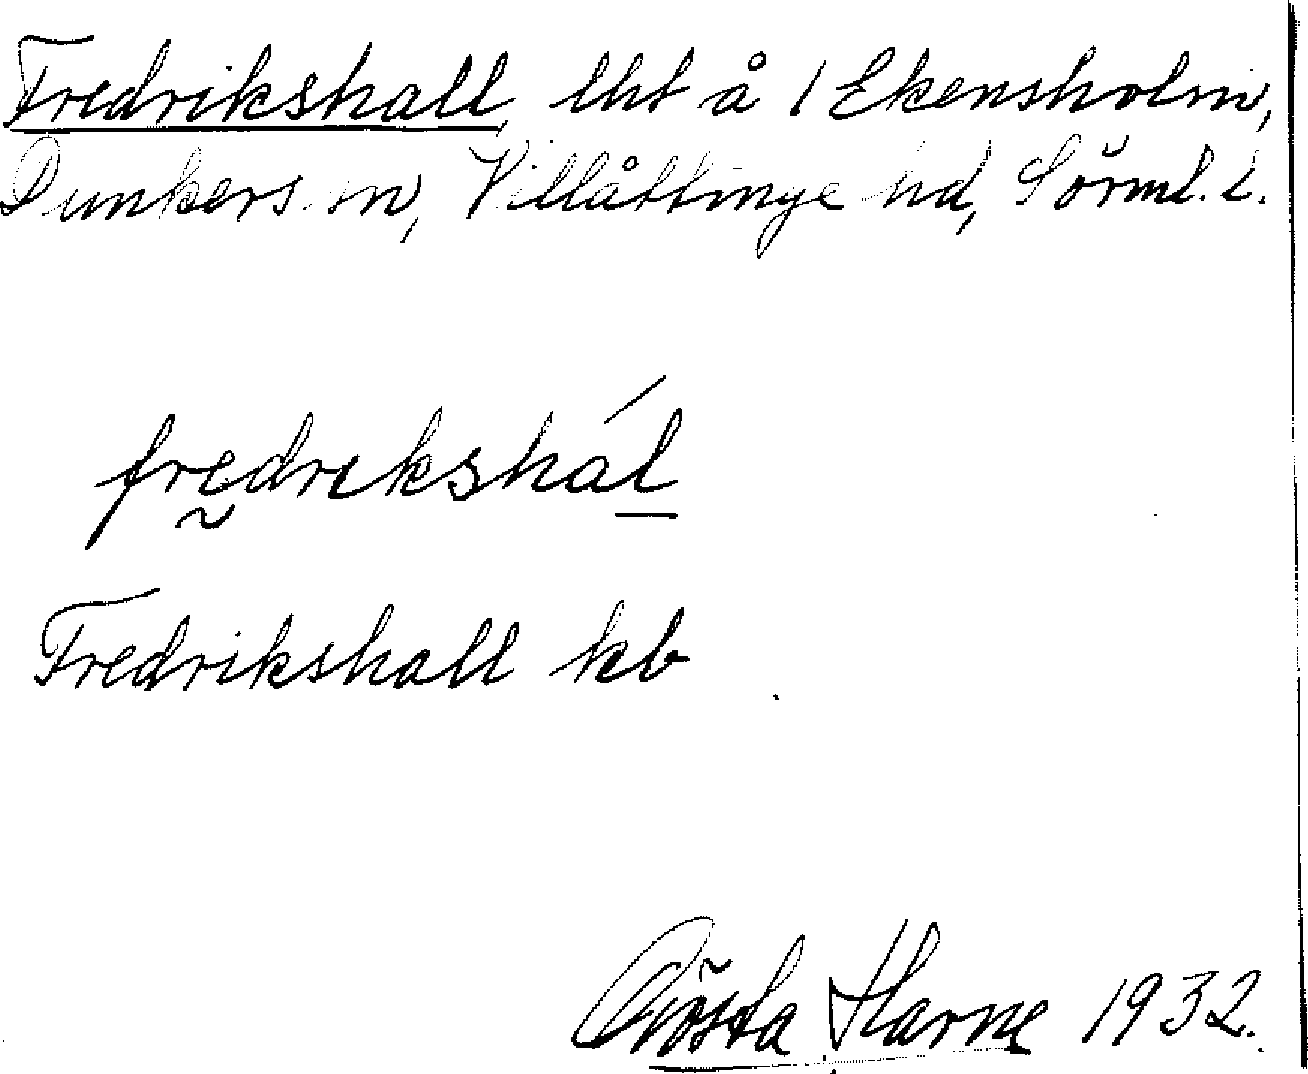 Fredrikshall, lht å 1 Ekensholm,
Dunkers sn, Villåttinge hd, Sörml. l.
fredrikshál
Fredrikshall kb
Gösta Harne 1932.